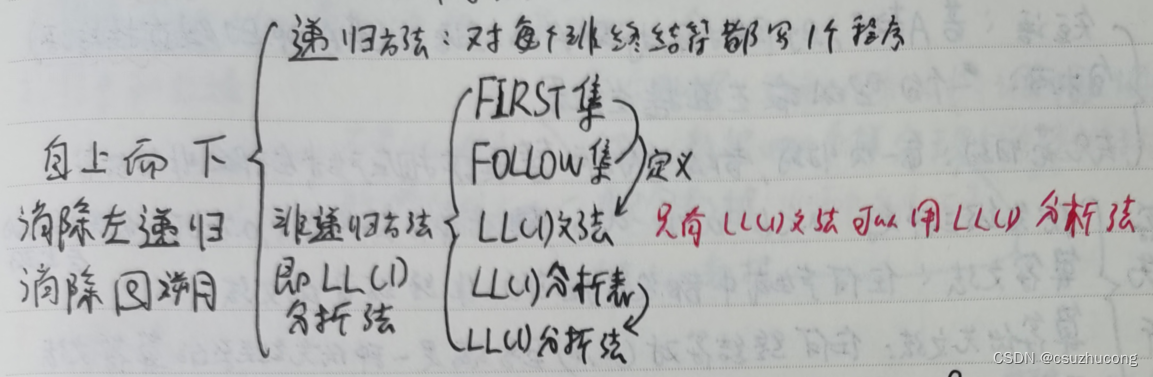 递归方法：对每个非终结符都写1个程序
自上而下
消除左递归
消除回溯
非递归方法
即LL(1)
分析法
FIRST集
FOLLOW集
定义
LL(1)文法
只有LL(1)文法可以用LL(1)分析法
LL(1)分析表
LL(1)分析法
CSDN @csuzhucong